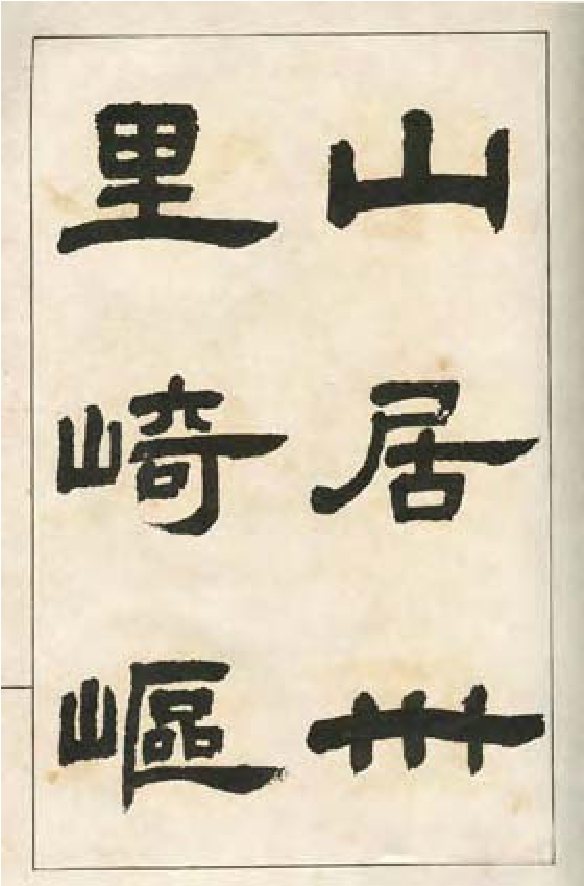 山居卌
里崎嶇